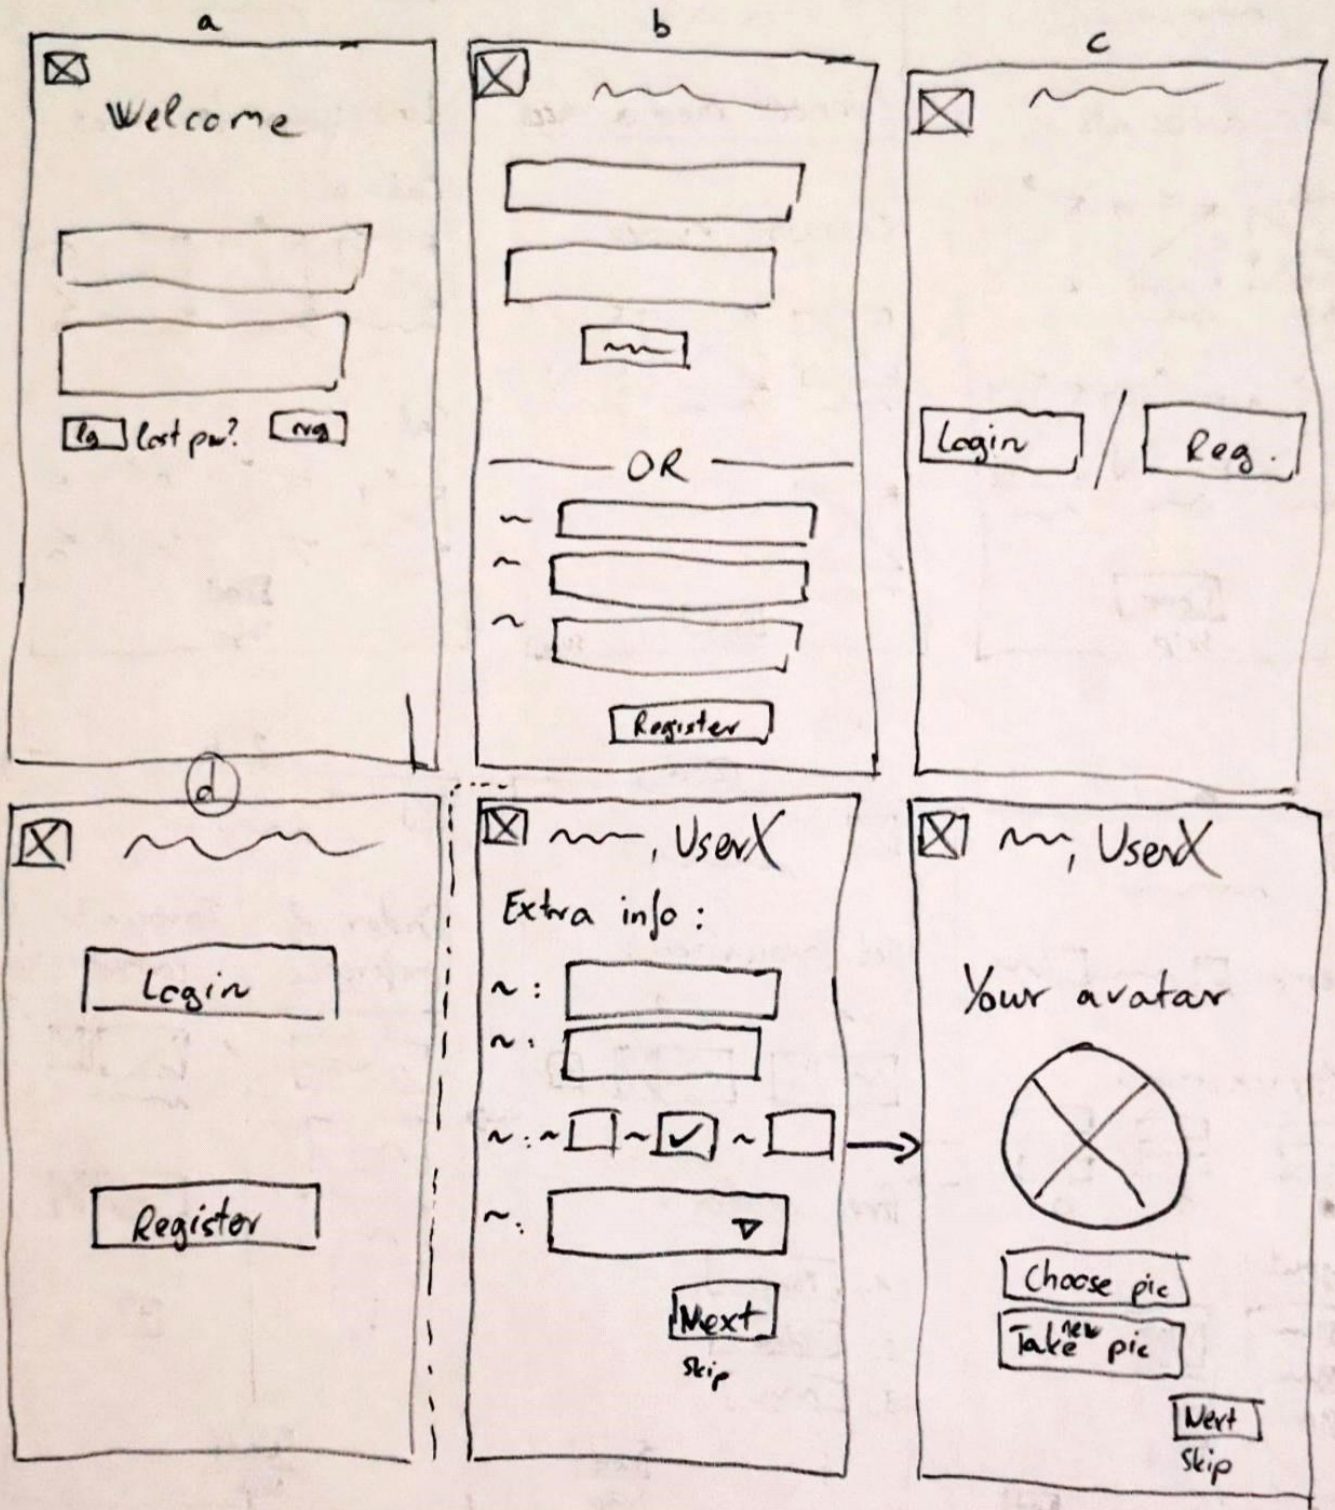 a
Welcome
lg lost pw? reg
b
OR
Register
c
Login / Reg.
d
Login
Register
, UserX
Extra info :
Next
Skip
, UserX
Your avatar
Choose pic
Take new pic
Next
Skip